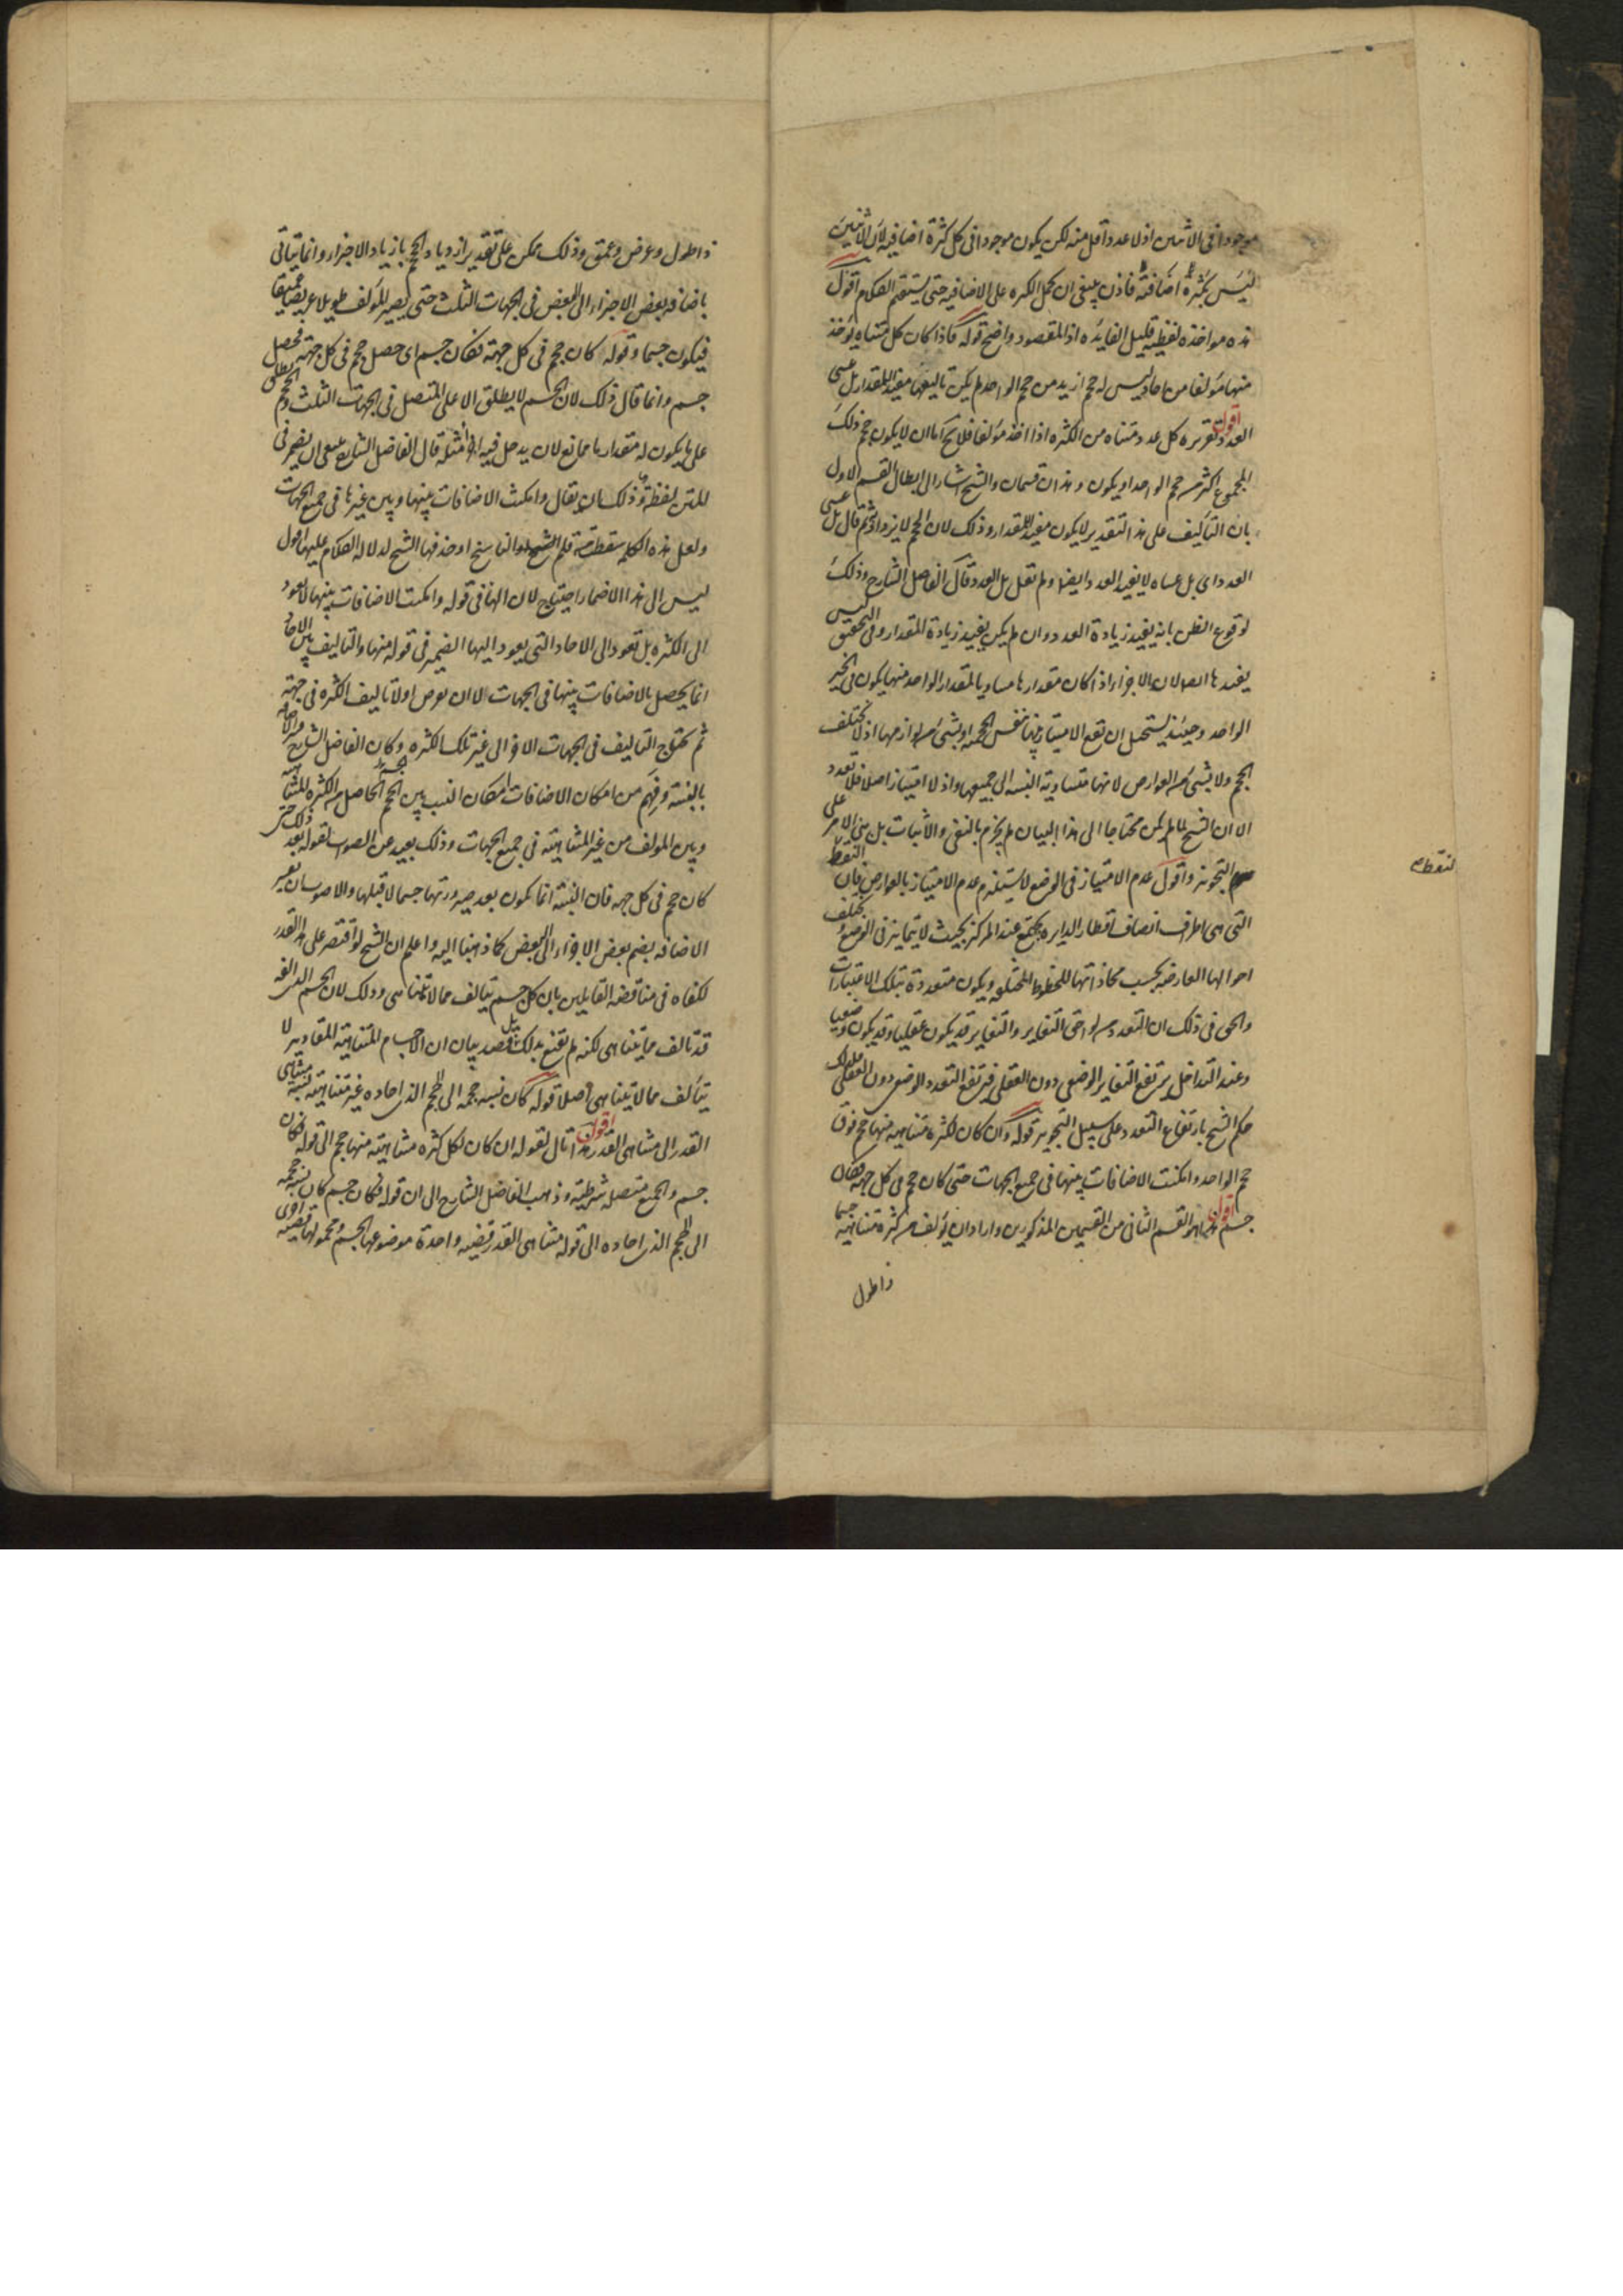 موجودا فى الاثنين اذ لا عدد اقل منه لكن يكون موجودا فى كل كثرة اضافية لان الاثنين
ليس بكثرة اضافية فاذن ينبغى ان يحمل الكثره على الاضافيه حتى يستقيم الكلام اقول
هذه مواخذه لفظيه قليل الفايده اذ المقصود واضح قوله فاذا كان كل متناه يوخذ
منها مولفا من احاد ليس له حجم ازيد من حجم الواحد لم يكن تاليفها مفيدا للمقدار بل عسى
العدد اقول تقريره كل عدد متناه من الكثره اذا اخذ مولفا فلا يخ اما ان لا يكون حجم ذلك
المجموع اكثر من حجم الواحد او يكون و هذان قسمان والشيخ اشار الى ابطال القسم الاول
بان التاليف على هذا التقدير لا يكون مفيدا للمقدار وذلك لان الحجم لا يزداد ثم قال بل عسى
العدد اى بل عساه لا يفيد العدد ايضا ولم تقل بل العدد قال الفاضل الشارح وذلك
لوقوع الظن بانه يفيد زيادة العدد وان لم يكن يفيد زيادة المقدار وفى التحقيق ليس
يفيدها ايضا لان الاجزاء اذا كان مقدارها مساويا لمقدار الواحد منها يكون فى حيز
الواحد وحينئذ يستحيل ان تقع الامتياز بينها بنفس الحجميه او بشئ من لوازمها اذ لا تختلف
الحجم ولا بشئ من العوارض لانها متساوية النسبه الى جميعها واذ لا امتياز اصلا فلا تعدد
الا ان الشيخ لما لم يكن محتاجا الى هذا البيان لم يجزم بالنفى والاثبات بل بنى الامر على
التجويز واقول عدم الامتياز فى الوضع لا يستلزم عدم الامتياز بالعوارض فان النقط
التى هى اطراف انصاف اقطار الدايره يجتمع عند المركز بحيث لا يتمايز فى الوضع و يختلف
احوالها العارضه بحسب محاذاتها للخطوط المختلفه ويكون متعددة بتلك الاعتبارات
والحق فى ذلك ان التعدد من لواحق التغاير والتغاير قد يكون عقليا وقد يكون وضعيا
وعند التداخل يرتفع التغاير الوضعى دون العقلى فيرتفع التعدد الوضعى دون العقلى
حكم الشيخ بارتفاع التعدد على سبيل التجويز قوله وان كان لكثرة متناهيه منها حجم فوق
حجم الواحد وامكنت الاضافات بينها فى جميع الجهات حتى كان حجم فى كل جهه فكان
جسم اقول هذا هو القسم الثانى من القسمين المذكورين واراد ان يولف من كثرة متناهيه جسما
ذا طول
نقطه
ذا طول وعرض وعمق وذلك ممكن على تقدير ازدياد الحجم بازياد الاجزاء وانما يتاتى
باضافه بعض الاجزاء الى البعض فى الجهات الثلث حتى يصير المولف طويلا عريضا عميقا
فيكون جسما وقوله كان حجم فى كل جهة فكان جسم اى حصل حجم فى كل جهة فحصل
جسم وانما قال ذلك لان الجسم لا يطلق الا على المتصل فى الجهات الثلث والحجم يطلق
على ما يكون له مقدار ما ممانع لان يدخل فيه امثله قال الفاضل الشارح ينبغى ان يضمر فى
المتن لفظة وذلك ان يقال وامكنت الاضافات بينها وبين غيرها فى جميع الجهات
ولعل هذه الكلمه سقطت من قلم الشيخ او الناسخ او حذفها الشيخ لدلاله الكلام عليها اقول
ليس الى هذا الاضمار احتياج لان الها فى قوله وامكنت الاضافات بينها لا تعود
الى الكثره بل تعود الى الاحاد التى يعود اليها الضمير فى قوله منها والتاليف بين الاحاد
انما يحصل بالاضافات بينها فى الجهات لا ان يفرض اولا تاليف الكثره فى جهة
ثم يحتاج التاليف فى الجهات الاخر الى غير تلك الكثره وكان الفاضل الشارح
بالنسبة وفهم من امكان الاضافات امكان النسب بين الحجم الحاصل من الكثره المتناهيه
وبين المولف من غير المتناهية فى جميع الجهات وذلك بعيد عن الصواب لقوله بعد ذلك حتى
كان حجم فى كل جهه فان النسبة انما تكون بعد صيرورتها جسما لا قبلها والاصوب ان تفسر
الاضافه بضم بعض الاجزاء الى البعض كما ذهبنا اليه واعلم ان الشيخ لو اقتصر على هذا القدر
لكفاه فى مناقضه القايلين بان كل جسم يتالف مما لا يتناهى وذلك لان الجسم الذى الفه
قد تالف مما يتناهى لكنه لم يقنع بذلك بل قصد بيان ان الاجسام المتناهية المقادير لا
يتالف مما لا يتناهى اصلا قوله كان نسبه حجمه الى الحجم الذى احاده غير متناهية نسبة متناهى
القدر الى متناهى القدر اقول هذا تال لقوله ان كان لكل كثره متناهية منها حجم الى قوله فكان
جسم والجميع متصله شرطية وذهب الفاضل الشارح الى ان قوله فكان جسم كان نسبه حجمه
الى الحجم الذى احاده الى قوله متناهى القدر قضيه واحدة موضوعها الجسم ومحمولها قضيه اخرى